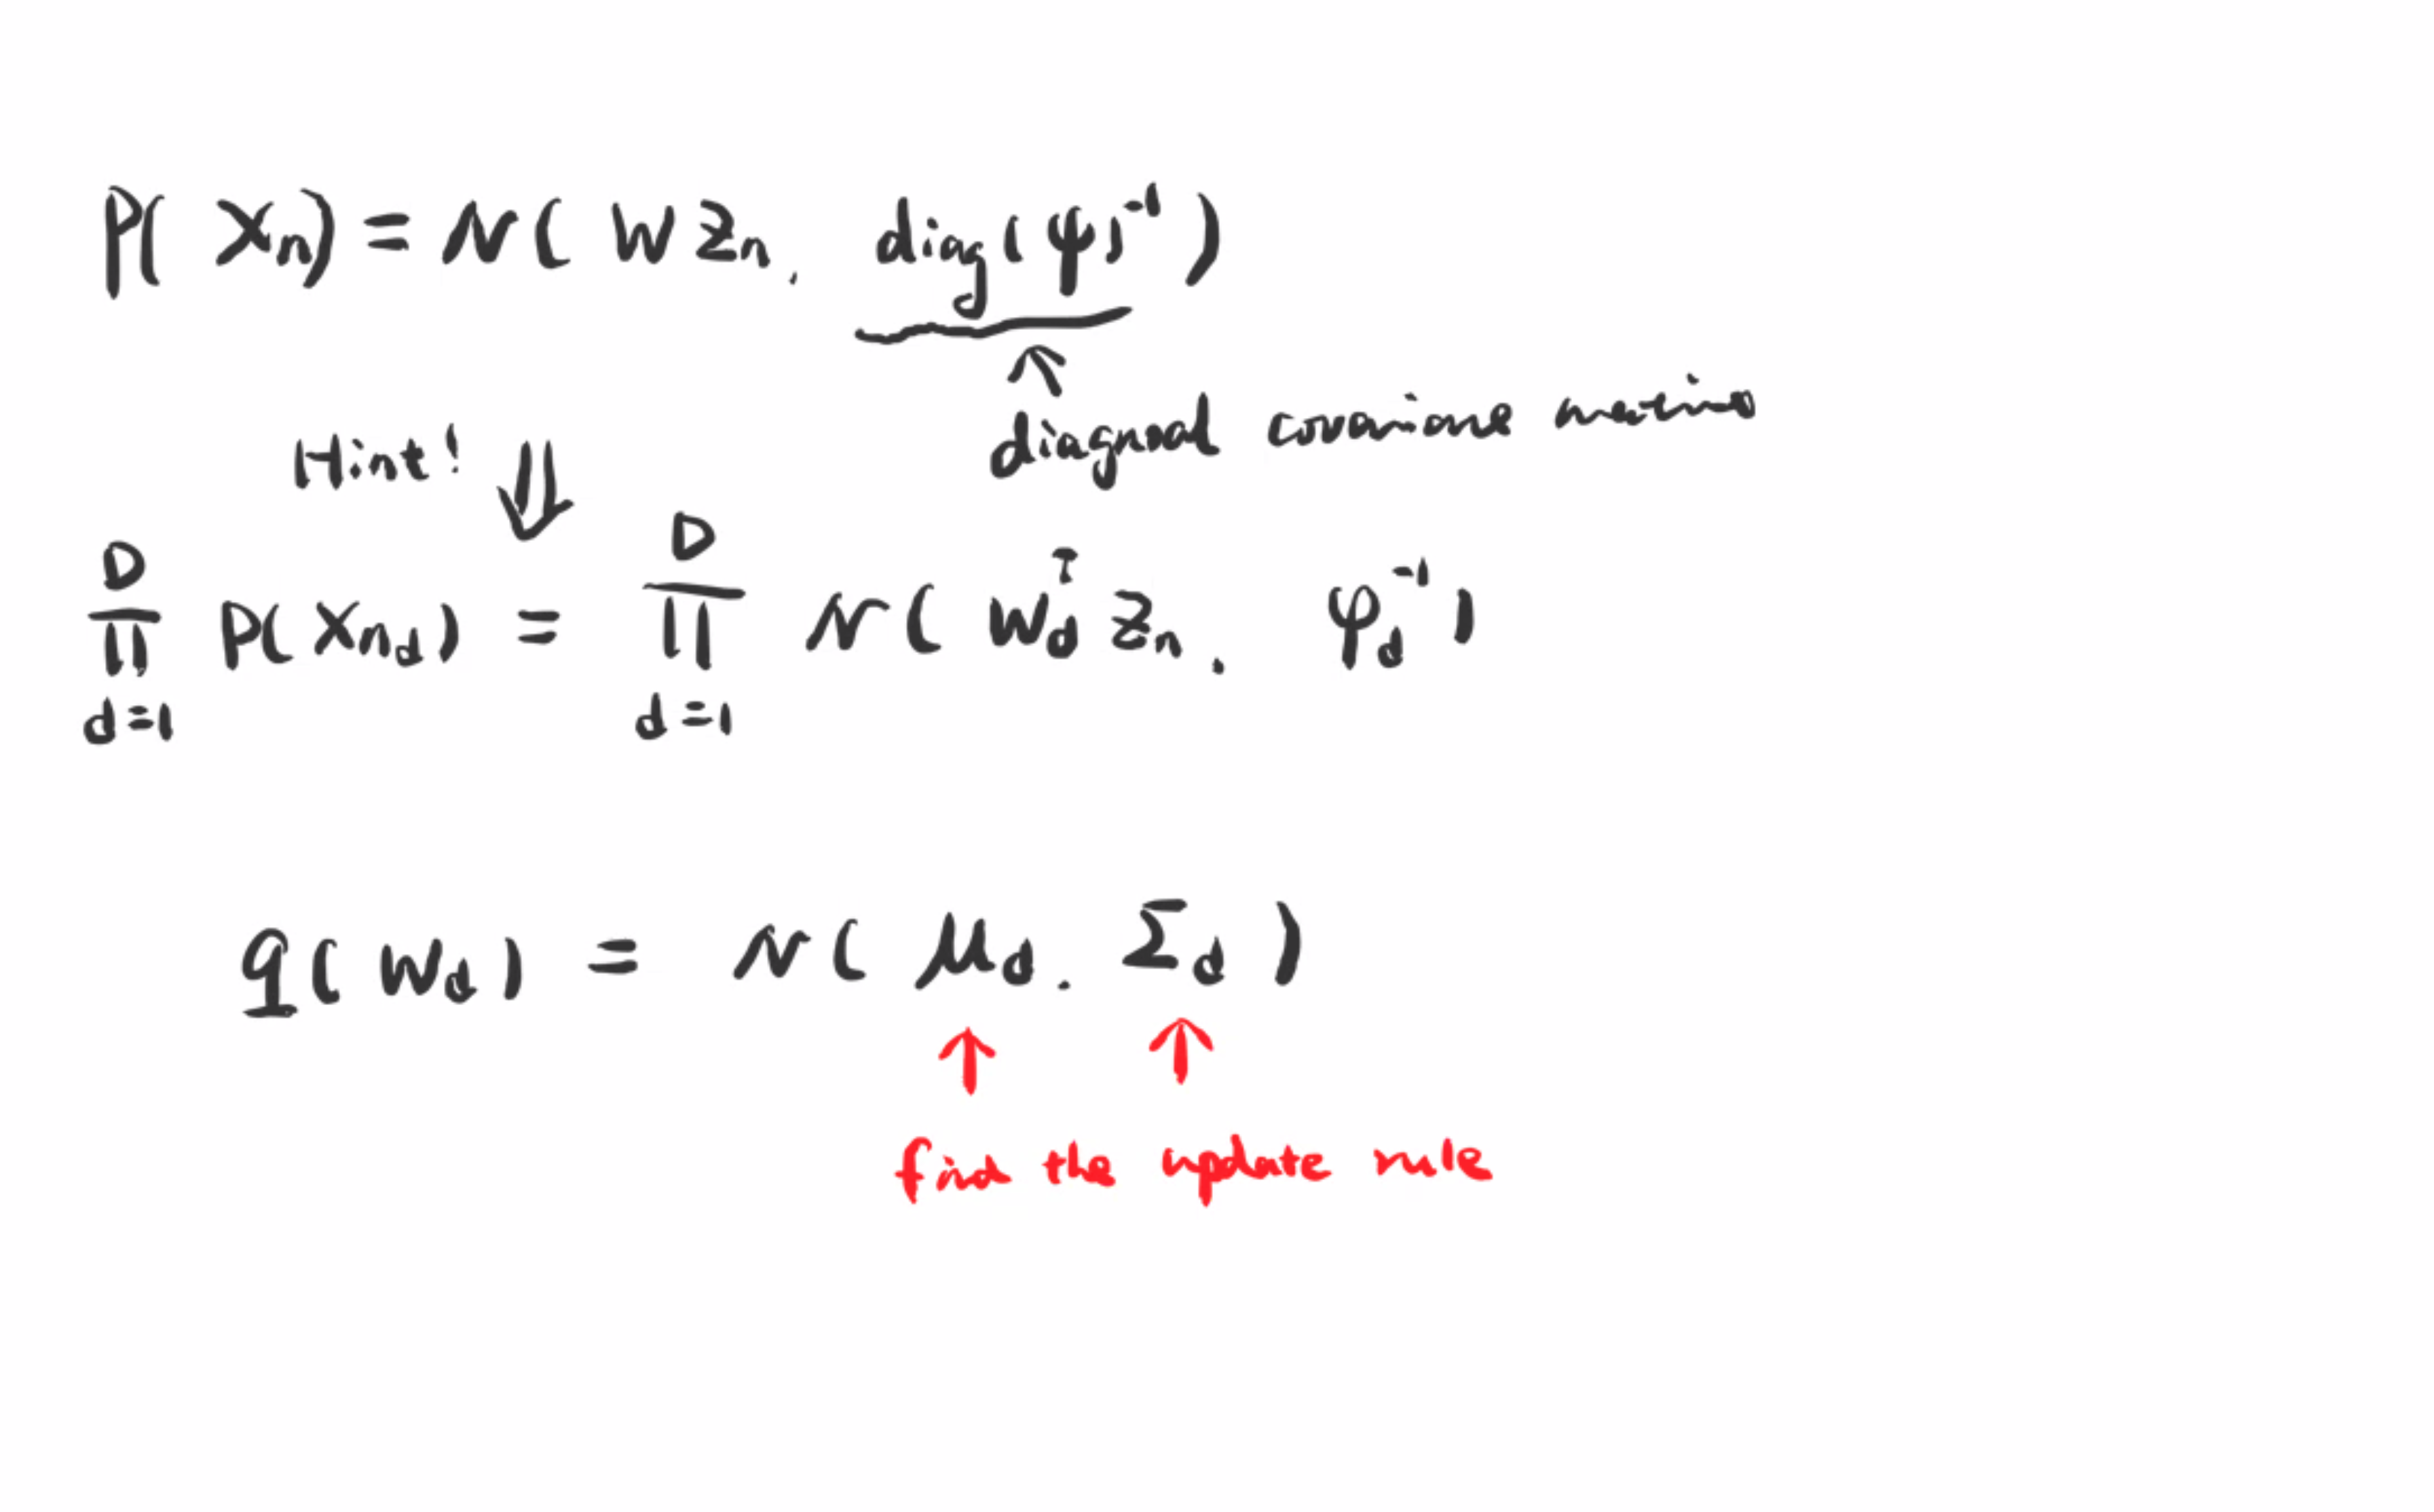 P( Xn) = N( W Zn, diag(ψ)⁻¹ )
diagnoal covariance matrix
Hint!
D D
∏ P(Xnd) = ∏ N( Wdᵀ Zn, φd⁻¹ )
d=1 d=1
q( Wd ) = N( μd, Σd )
find the update rule